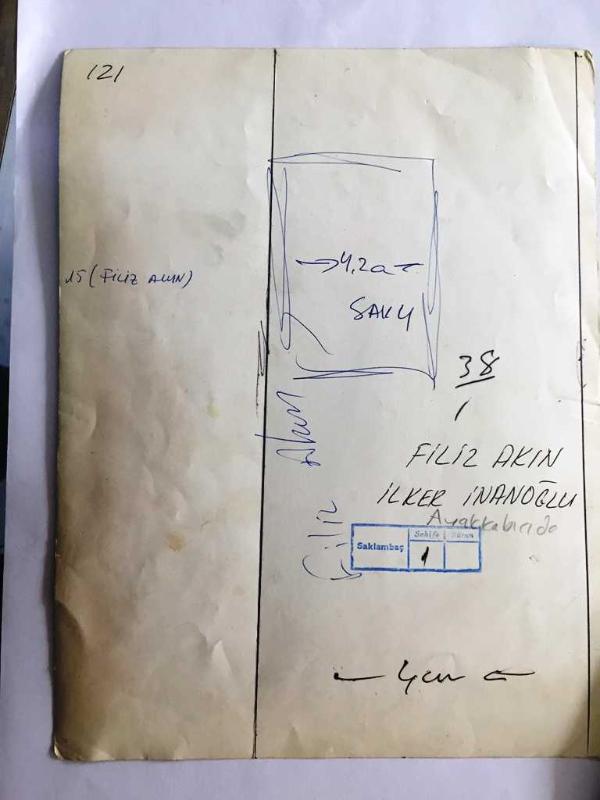 121
15 (FİLİZ AKIN)
4,2a
38
1
Filiz Akın
FİLİZ AKIN
İLKER İNANOĞLU
Ayakkabıcıda
Saklambaç
Sahife
Sütun
1